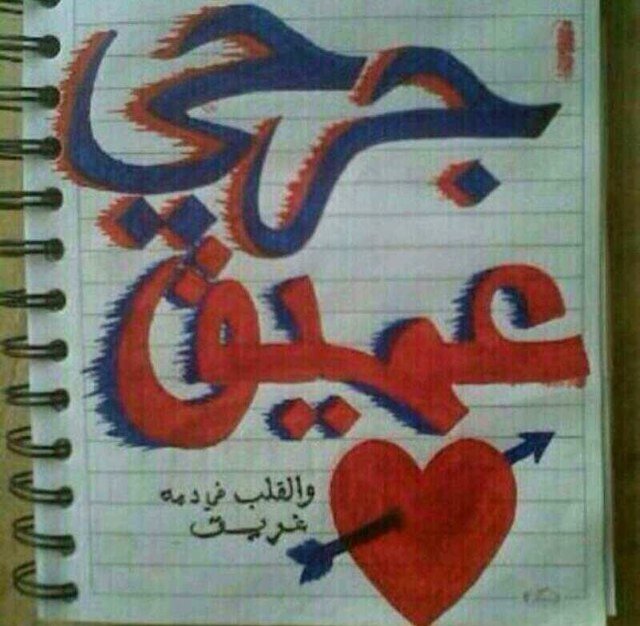 جرحي
عميق
والقلب في دمه
غريق